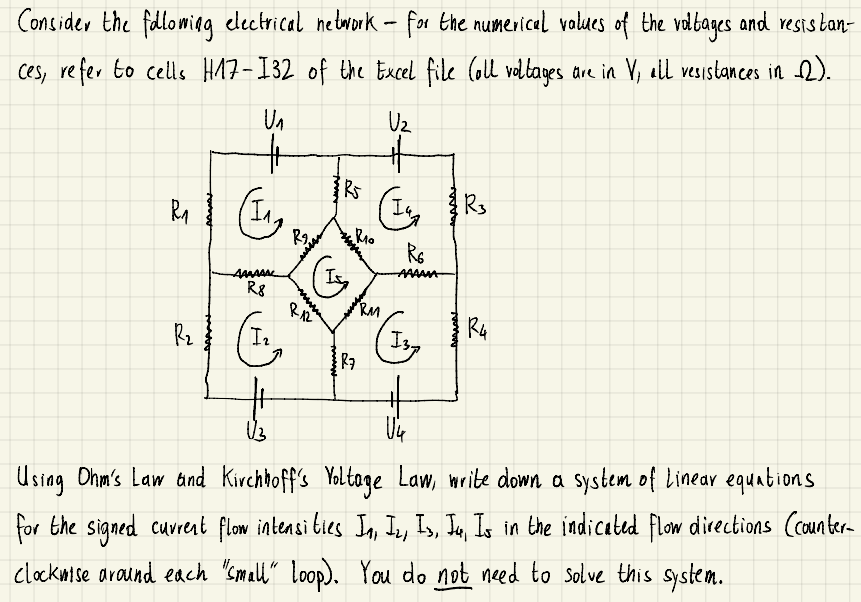 Consider the following electrical network – for the numerical values of the voltages and resistan-
ces, refer to cells H17-I32 of the Excel file (all voltages are in V, all resistances in Ω).
U1 U2
R1 I1 R5 I4 R3
R9 R10
R8 I5 R6
R12 R11
R2 I2 I3 R4
R7
U3 U4
Using Ohm's Law and Kirchhoff's Voltage Law, write down a system of linear equations
for the signed current flow intensities I1, I2, I3, I4, I5 in the indicated flow directions (counter-
clockwise around each "small" loop). You do not need to solve this system.